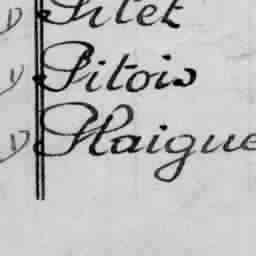 y Pitet
y Pitois
y Plaigue